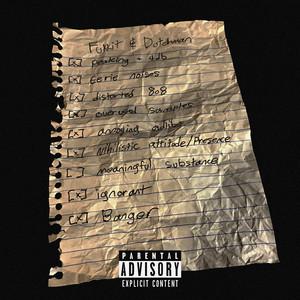 & Dutchman
[x] peaking = 4db
[x] Eerie noises
[x] distorted 808
[x] overused samples
[x] annoying adlibs
[x] Nihilistic attitude/Presence
[ ] meaningful substance
[x] ignorant
[x] Banger
PARENTAL
ADVISORY
EXPLICIT CONTENT